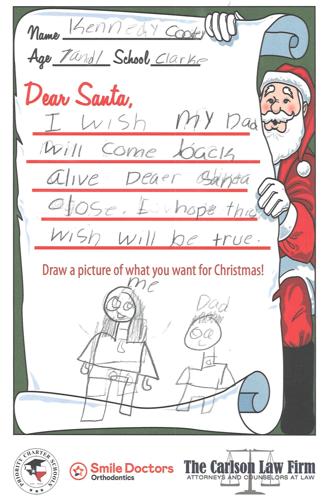 Name Kennedy Cooper
Age 7 and 1 School Clarke
Dear Santa,
I wish my Dad
will come back
alive Deaer Santa
Close. I hope this
wish will be true.
Draw a picture of what you want for Christmas!
me
Dad
PRIORITY CHARTER SCHOOLS
Smile Doctors
Orthodontics
The Carlson Law Firm
ATTORNEYS AND COUNSELORS AT LAW